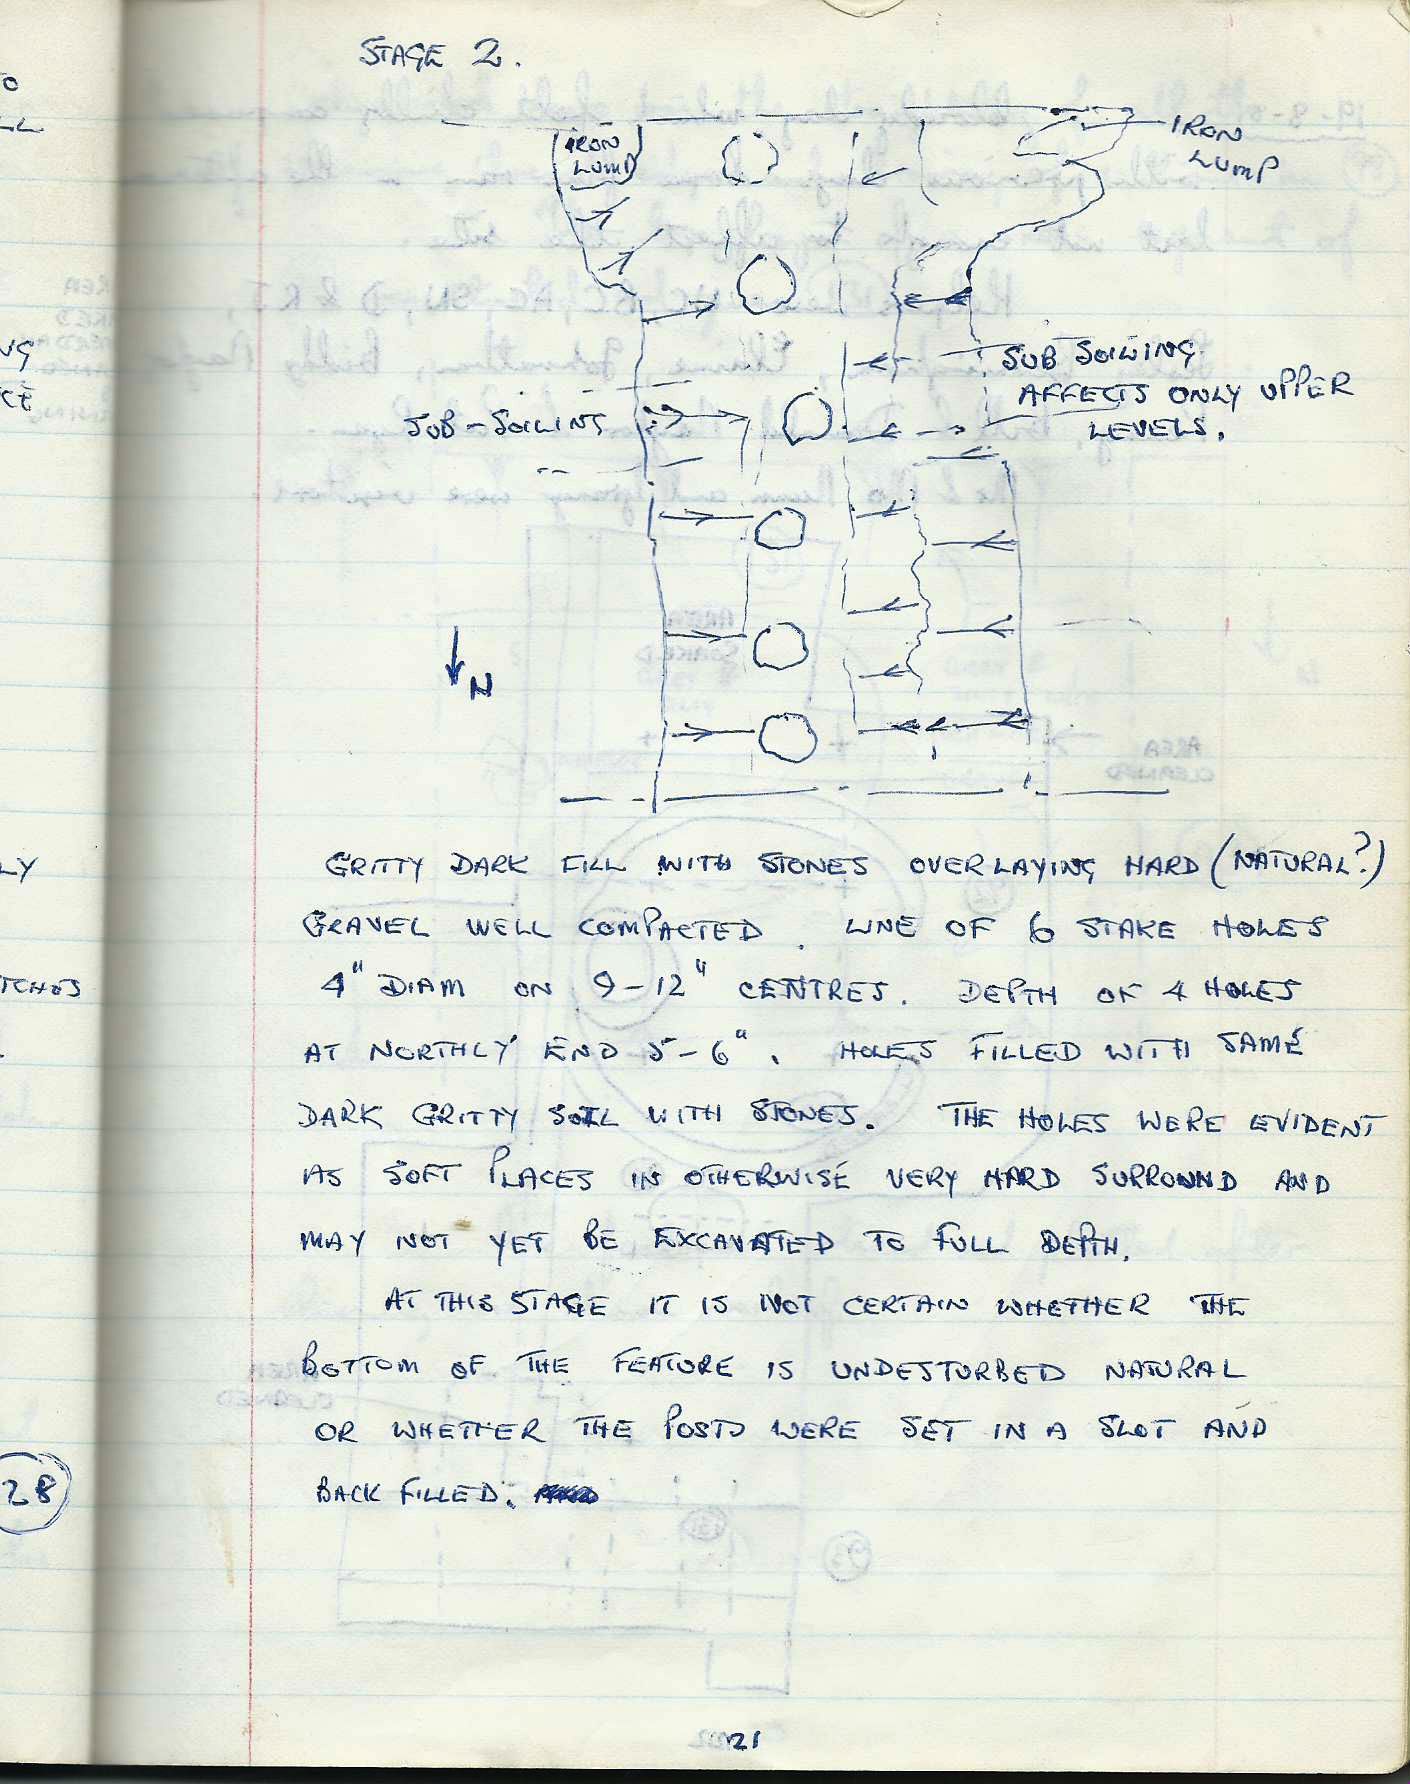 STAGE 2.
IRON
LUMP
IRON
LUMP
SUB SOILING
AFFECTS ONLY UPPER
LEVELS.
SUB-SOILING
N
GRITTY DARK FILL WITH STONES OVERLAYING HARD (NATURAL?)
GRAVEL WELL COMPACTED. LINE OF 6 STAKE HOLES
4" DIAM ON 9-12" CENTRES. DEPTH OF 4 HOLES
AT NORTHLY END 5-6". HOLES FILLED WITH SAME
DARK GRITTY SOIL WITH STONES. THE HOLES WERE EVIDENT
AS SOFT PLACES IN OTHERWISE VERY HARD SURROUND AND
MAY NOT YET BE EXCAVATED TO FULL DEPTH.
AT THIS STAGE IT IS NOT CERTAIN WHETHER THE
BOTTOM OF THE FEATURE IS UNDESTURBED NATURAL
OR WHETHER THE POSTS WERE SET IN A SLOT AND
BACK FILLED.
28
21